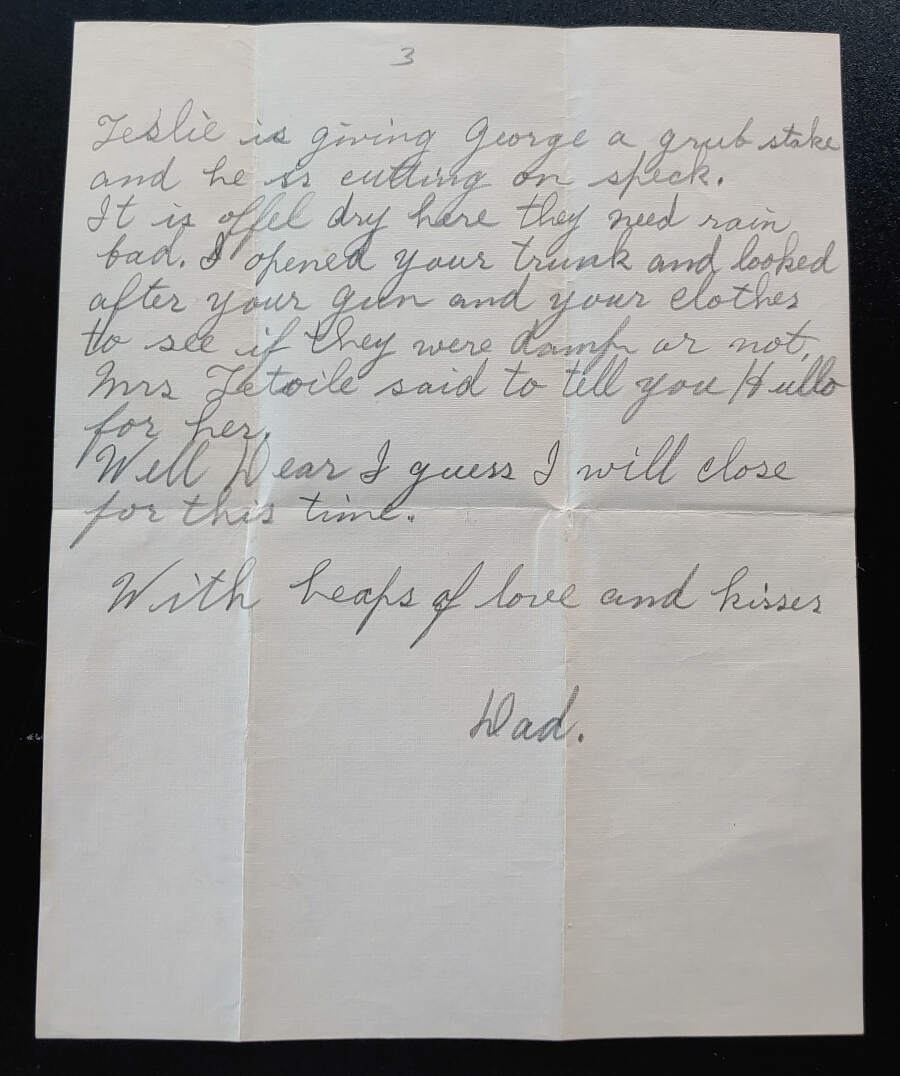 3
Leslie is giving George a grub stake
and he is cutting on speck.
It is offel dry here they need rain
bad. I opened your trunk and looked
after your gun and your clothes
to see if they were damp or not,
Mrs Letoile said to tell you Hullo
for her.
Well Dear I guess I will close
for this time.
With heaps of love and kisses
Dad.